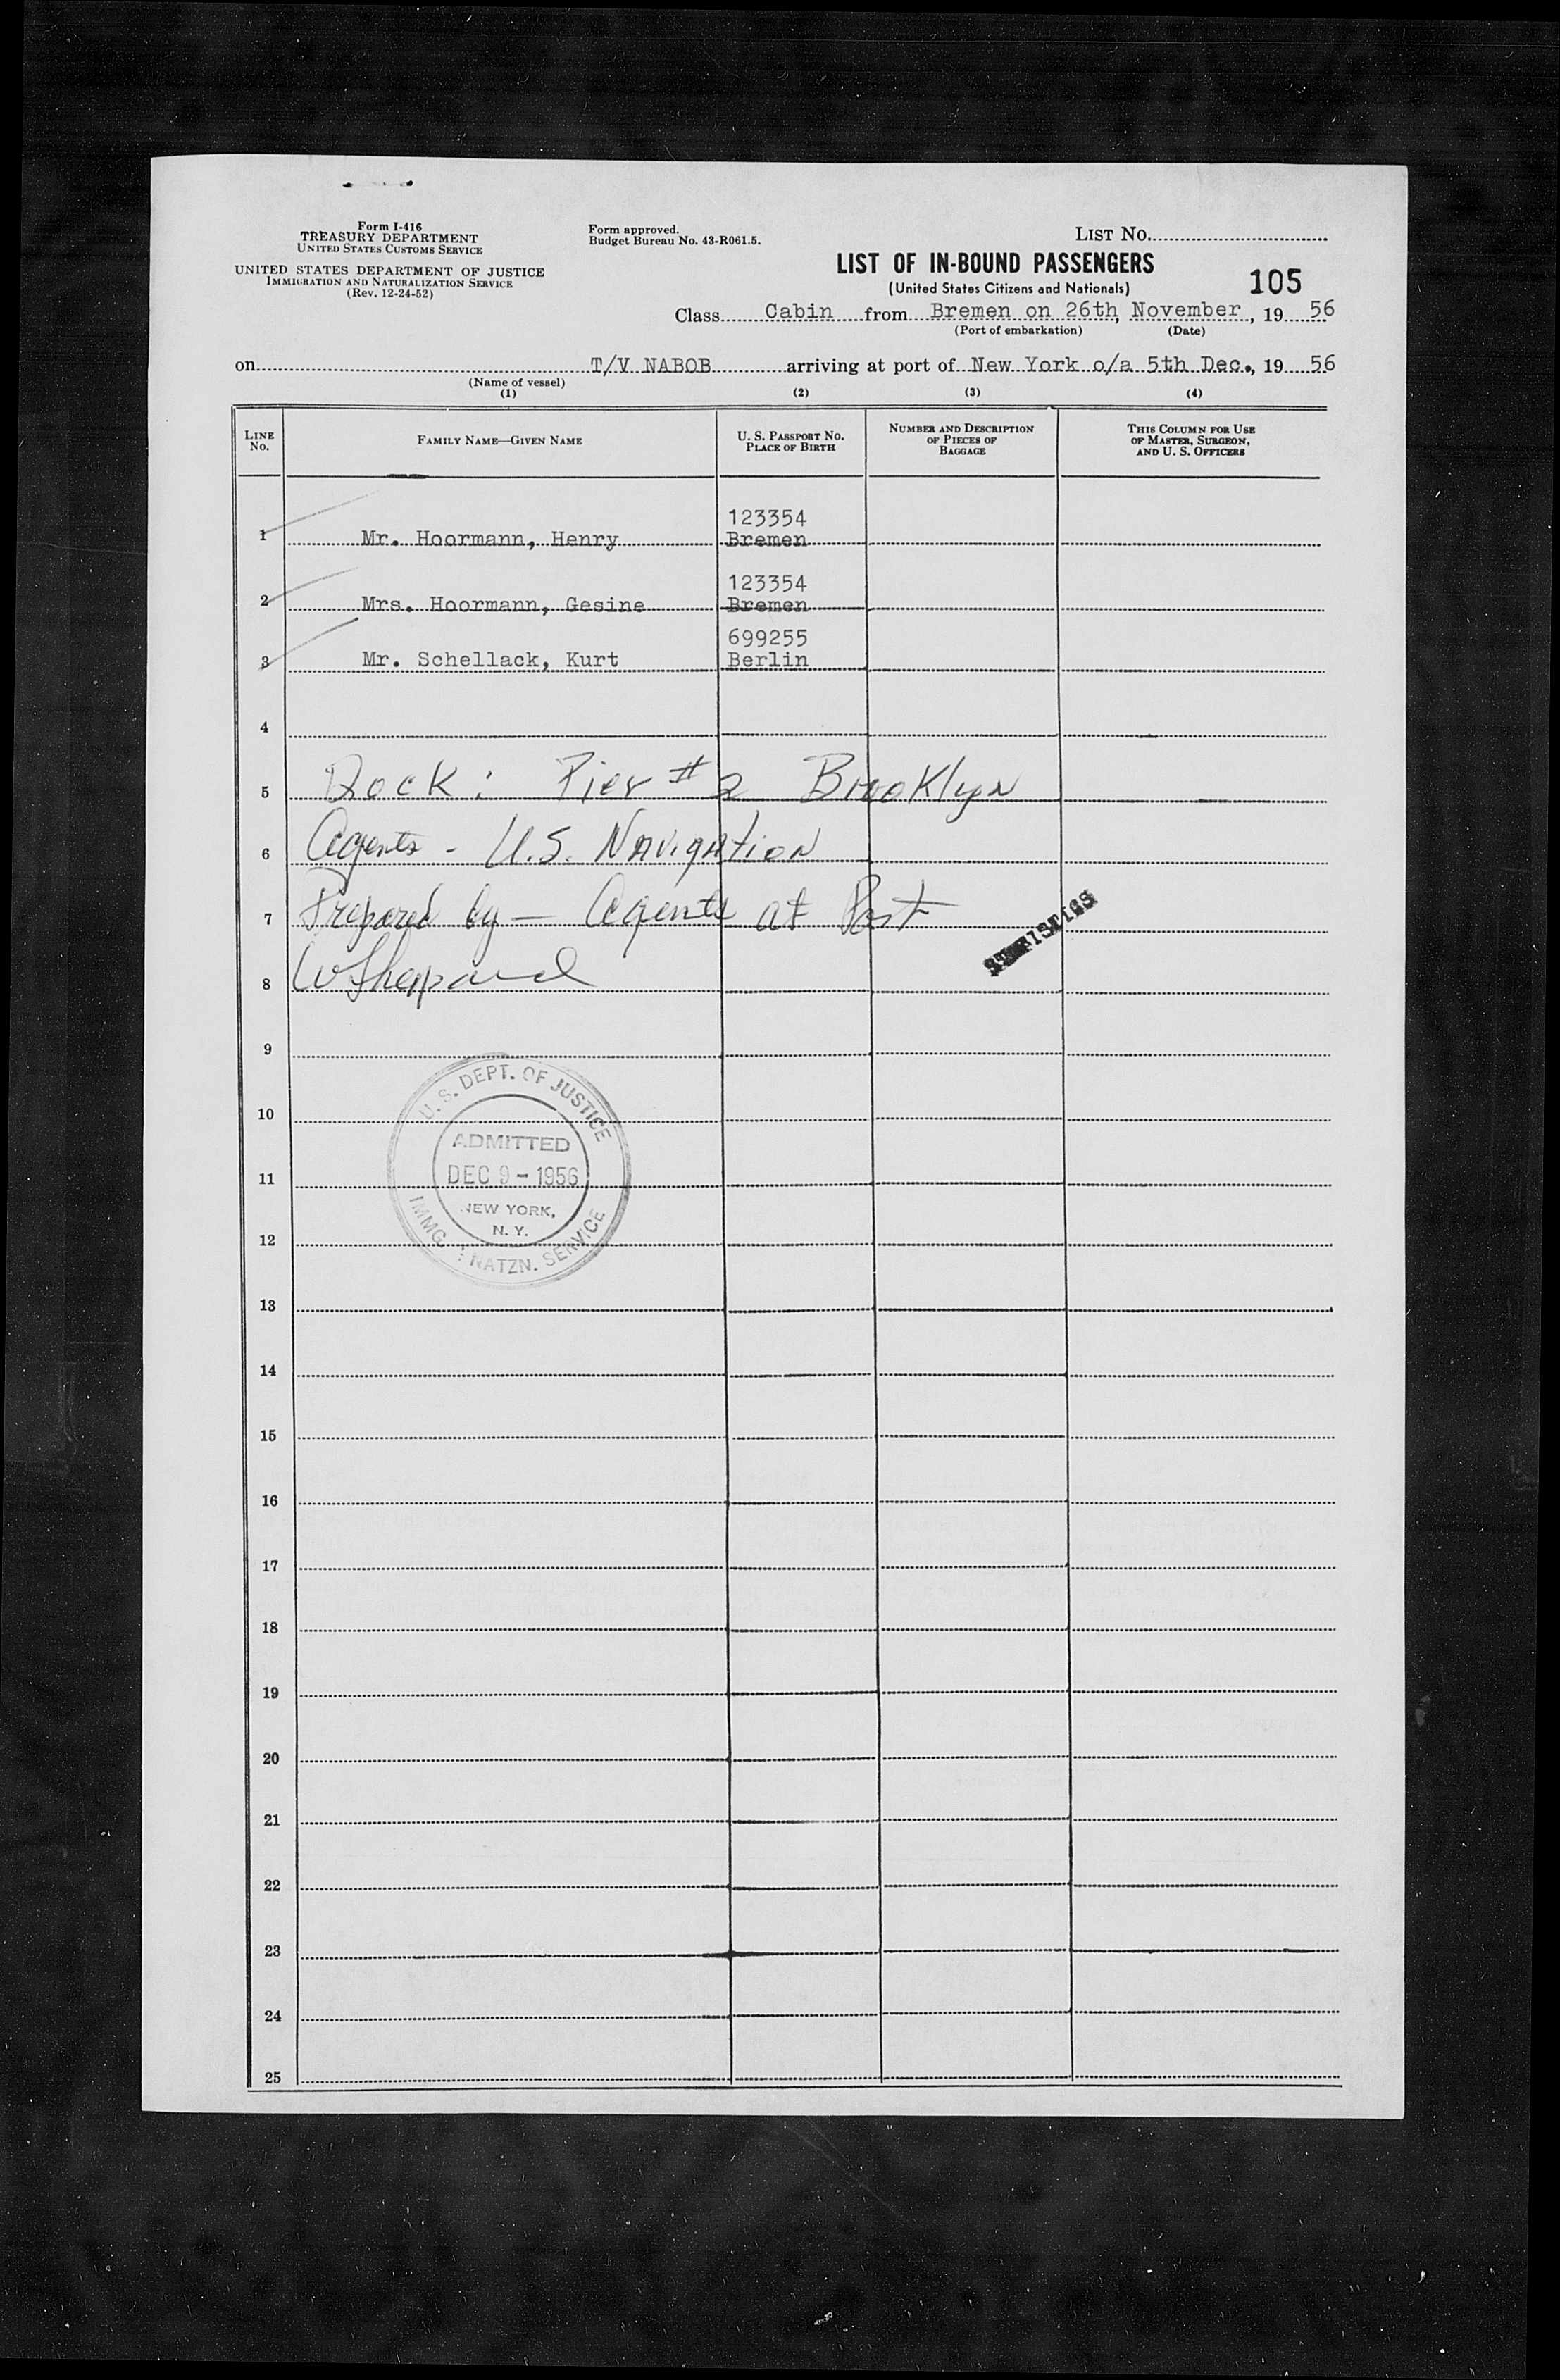 Form I-416
TREASURY DEPARTMENT
UNITED STATES CUSTOMS SERVICE
UNITED STATES DEPARTMENT OF JUSTICE
IMMIGRATION AND NATURALIZATION SERVICE
(Rev. 12-24-52)
Form approved.
Budget Bureau No. 43-R061.5.
LIST NO.
LIST OF IN-BOUND PASSENGERS
(United States Citizens and Nationals)
105
Class Cabin from Bremen on 26th, November, 19 56
(Port of embarkation) (Date)
on T/V NABOB arriving at port of New York o/a 5th Dec., 19 56
(Name of vessel)
(1) (2) (3) (4)
LINE NO.
FAMILY NAME—GIVEN NAME
U. S. PASSPORT NO.
PLACE OF BIRTH
NUMBER AND DESCRIPTION
OF PIECES OF
BAGGAGE
THIS COLUMN FOR USE
OF MASTER, SURGEON,
AND U. S. OFFICERS
123354
1 Mr. Hoormann, Henry Bremen
123354
2 Mrs. Hoormann, Gesine Bremen
699255
3 Mr. Schellack, Kurt Berlin
4
5 Dock: Pier #2 Brooklyn
6 Agents - U.S. Navigation
7 Prepared by - Agents at Port
8 W Sheppard
9
10
11
12
13
14
15
16
17
18
19
20
21
22
23
24
25
U. S. DEPT. OF JUSTICE
ADMITTED
DEC 9 - 1956
NEW YORK,
N. Y.
IMMG. NATZN. SERVICE